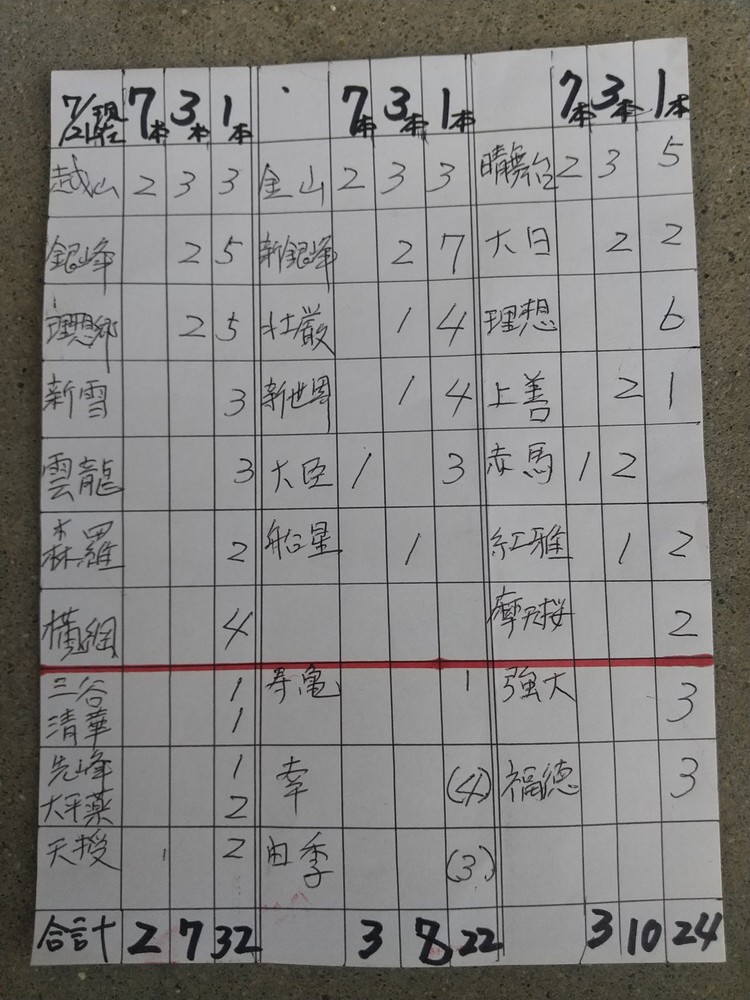 7/21現在 7本 3本 1本 7本 3本 1本 7本 3本 1本
越山 2 3 3 金山 2 3 3 晴舞台 2 3 5
銀峰 2 5 新銀峰 2 7 大日 2 2
理想郷 2 5 壮厳 1 4 理想 6
新雪 3 新世界 1 4 上善 2 1
雲龍 3 大臣 1 3 赤馬 1 2
森羅 2 船星 1 紅雅 1 2
横綱 4 摩天桜 2
三谷 1 寿亀 1 強大 3
清華 1
先峰 1 幸 (4) 福徳 3
太平薬 2
天授 2 四季 (3)
合計 2 7 32 3 8 22 3 10 24